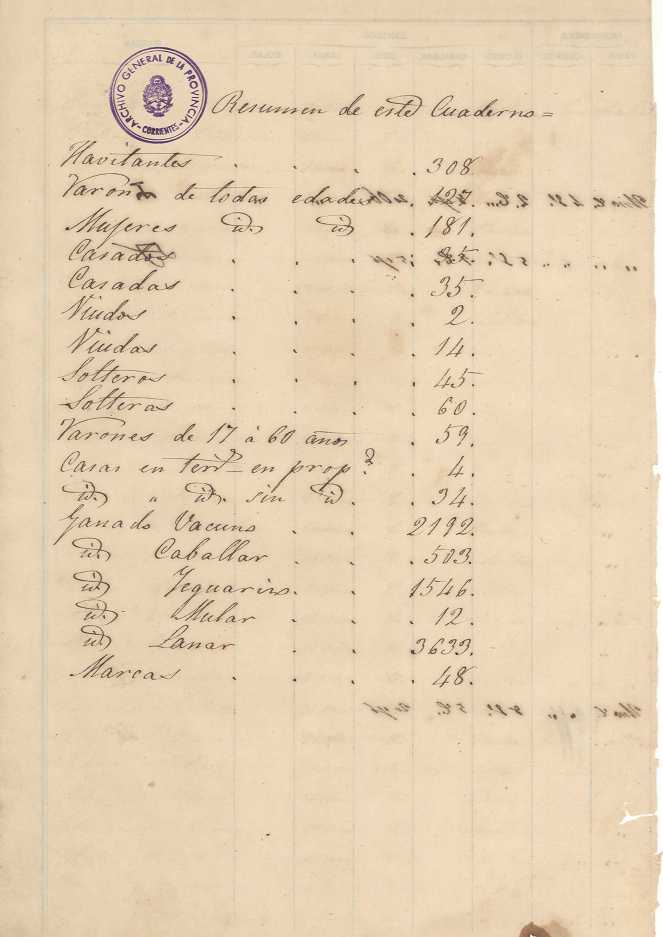 ARCHIVO GENERAL DE LA PROVINCIA - CORRIENTES -
Resumen de este Cuaderno =
Havitantes . . . . 308.
Varones de todas edades . 127.
Mujeres id. id . 181.
Casados . . . . 35.
Casadas . . . . 35.
Viudos . . . . 2.
Viudas . . . . 14.
Solteros . . . . 45.
Solteras . . . . 60.
Varones de 17 à 60 años . 59.
Casas en terd. en prop? . 4.
id. " id. sin id. . 34.
Ganado Vacuno . . 2192.
id Caballar . . . 503.
id. Yeguarizo. . . 1546.
id. Mular . . . 12.
id. Lanar . . 3633.
Marcas . . . . 48.